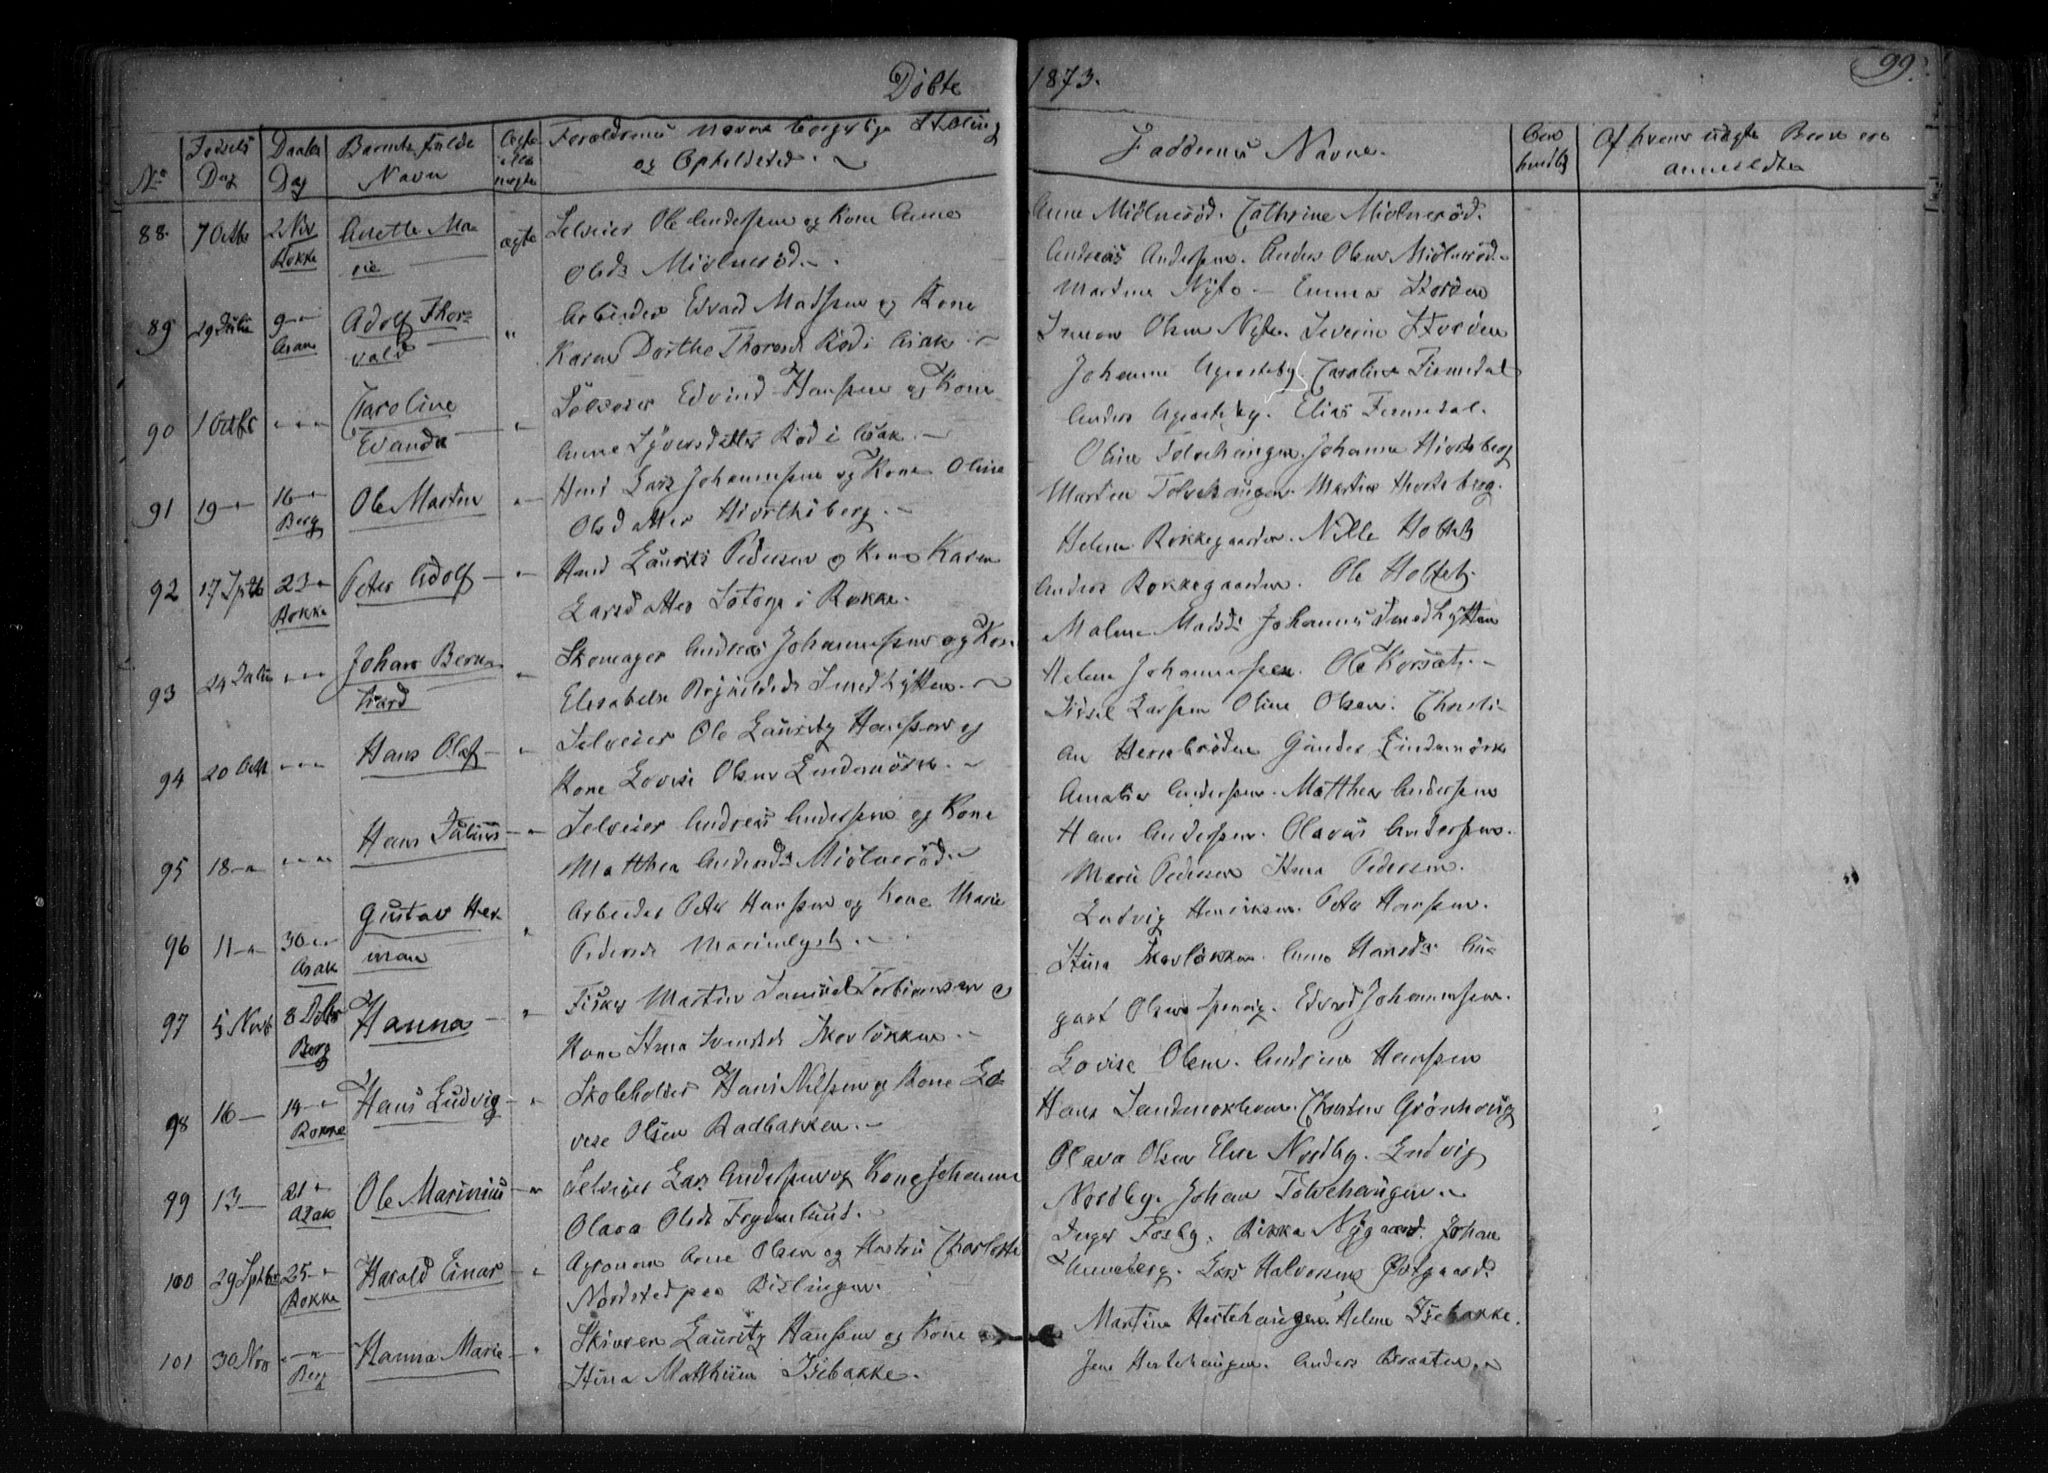 Döbte 1873. 99.
No Fødsels Dag Daabs Dag Barnets fulde Navn ægte eller uægte Forældrenes Navne borgerlige Stilling og Opholdsted.
Faddernes Navne. Af hvem uægte Børn ere anmeldte
88. 7 Octbr 2 Nov Rokke Anette Marie ægte Selveier Ole Anderssen og Kone Anne
Olsdr Miölneröd.
Anne Miölneröd. Cathrine Miölneröd.
Andreas Anderssen. Anders Olsen Miölneröd.
89 29 Julie 9 Asak Adolf Thorvald " Arbeider Edvard Madssen og Kone
Karen Dorthe Thoresdr Röd i Asak
Martine Nÿfo - Emma Skorden
Simon Olsen Nÿfo. Severin Skorden
90 1 Octbr " " Caroline Evanda " Selveier Edvind Hanssen og Kone
Anne Syversdatter Röd i Asak.
Johanne Agerteby. Caroline Firmedal
Anders Agerteby. Elias Firmedal.
91 19 " 16 " Berg Ole Martin " Hmd Lars Johannssen og Kone Oline
Olsdatter Hiorthsberg.
Oline Tolvehaugen. Johanne Hiorthsberg
Martin Tolvehaugen. Martin Hiortsberg.
92 17 Sptb 23 " Rokke Peter Adolf " Hmd Laurits Pedersen og Kone Karen
Larsdatter Sotoge i Rokke.
Helene Rokkegaarden. Nille Holtet
Anders Rokkegaarden. Ole Holtet.
93 24 Julie " " Johan Bernhard " Skomager Andreas Johannessen og Kone
Elisabeth Brynildsdr Smedhytten.
Malene Madsdr Johannes Smedhytten
Helene Johannessen. Ole Korsæt.
94 20 Octb " " Hans Olaf " Selveier Ole Lauritz Hanssen og
Kone Lovise Olsen Lindemörk.
Sidsel Larssen Oline Olsen. Christian
Herrebröden Gunder Lindemörk
95 18 " " " Hans Julius " Selveier Andreas Anderssen og Kone
Matthea Andersdr Miölneröd.
Amalia Anderssen. Matthea Anderssen
Hans Anderssen. Olavus Anderssen.
96 11 " 30 " Asak Gustav Herman " Arbeider Peter Hanssen og Kone Marie
Pedersdr Marienlyst.
Marie Pedersen Stina Pedersen.
Ludvig Henriksen. Peter Hanssen.
97 5 Novb 8 Dcbr Berg Hanna " Fisker Martin Samuel Torbiörnsen og
Kone Stina Svendsdr Skovlökken.
Stina Skovlökken. Anne Hansdr. Au-
gust Olsen. Edvard Johannessen.
98 16 " 14 " Rokke Hans Ludvig " Skoleholder Hans Nilssen og Kone Lo-
vise Olsen Radbakken.
Lovise Olsen. Andrine Hanssen
Hans Sandmoxheim. Christen Grönhoug
99 13 " 21 " Asak Ole Marinius " Selveier Lars Anderssen og Kone Johanne
Olava Olsdr Frydenlund.
Olava Olsen Else Nordby. Ludvig
Nordby. Johan Tolvehaugen.
100 29 Sptbr 25 " Rokke Harald Einar " Agronom Arne Olsen og Hustru Charlotte
Nordsted paa Bislingen.
Inger Fosby. Rikka Nygaard. Johan
Thuneberg. Lars Halvorsen Østgaard.
101 30 Nov " " Berg Hanna Marie " Skredder Lauritz Hanssen og Kone
Stina Matthisen Isebakke.
Martine Hestehaugen. Helene Isebakke.
Jens Hestehaugen. Anders Braaten.